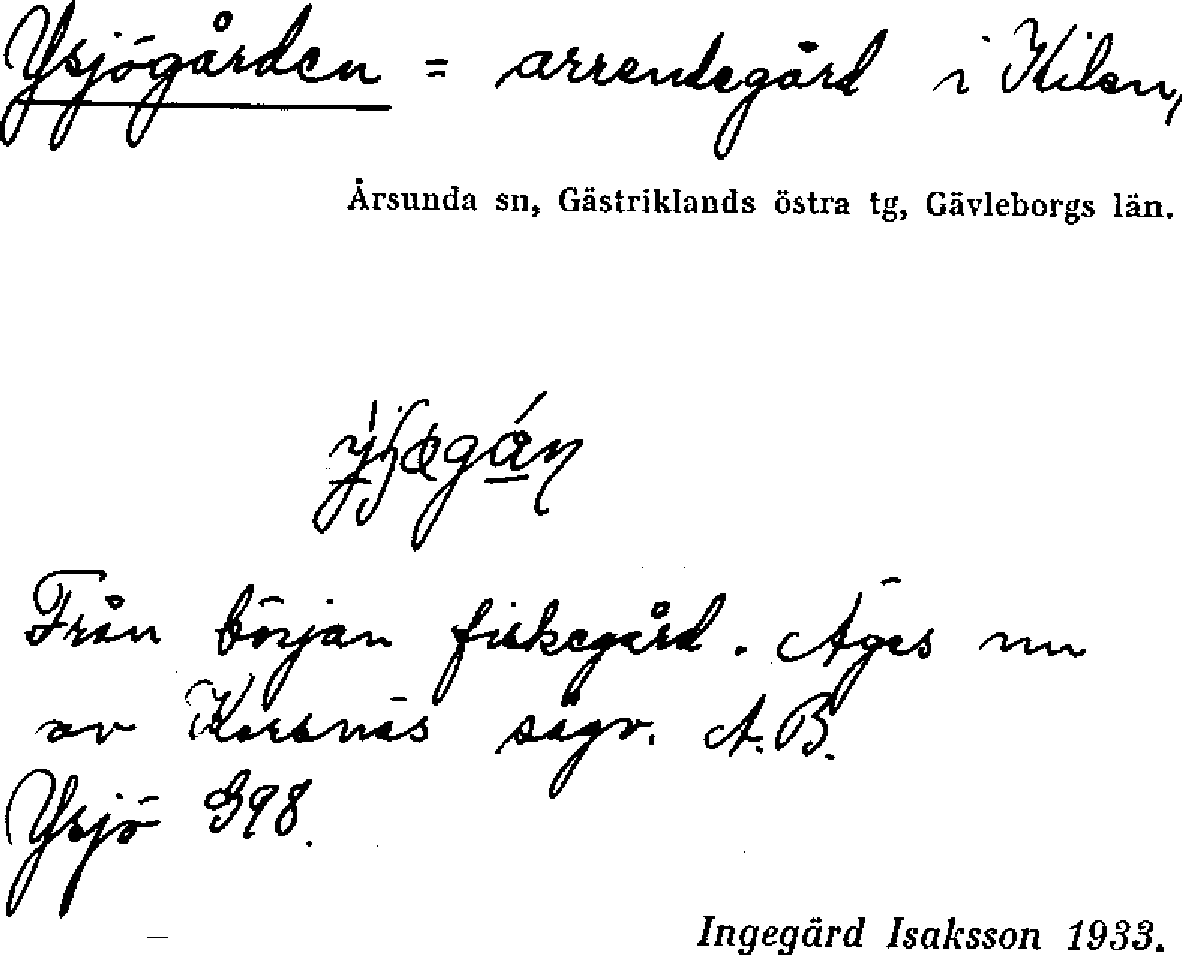 Ysjögården = arrendegård i Kilen,
Årsunda sn, Gästriklands östra tg, Gävleborgs län.
Från början fiskegård. Äges nu
av Korsnäs sågv. A.B.
Ysjö G98.
Ingegärd Isaksson 1933.